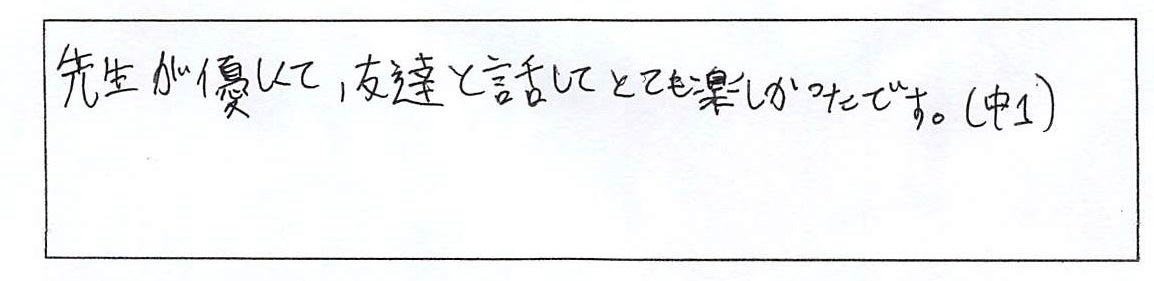 先生が優しくて,友達と話してとても楽しかったです。(中1)